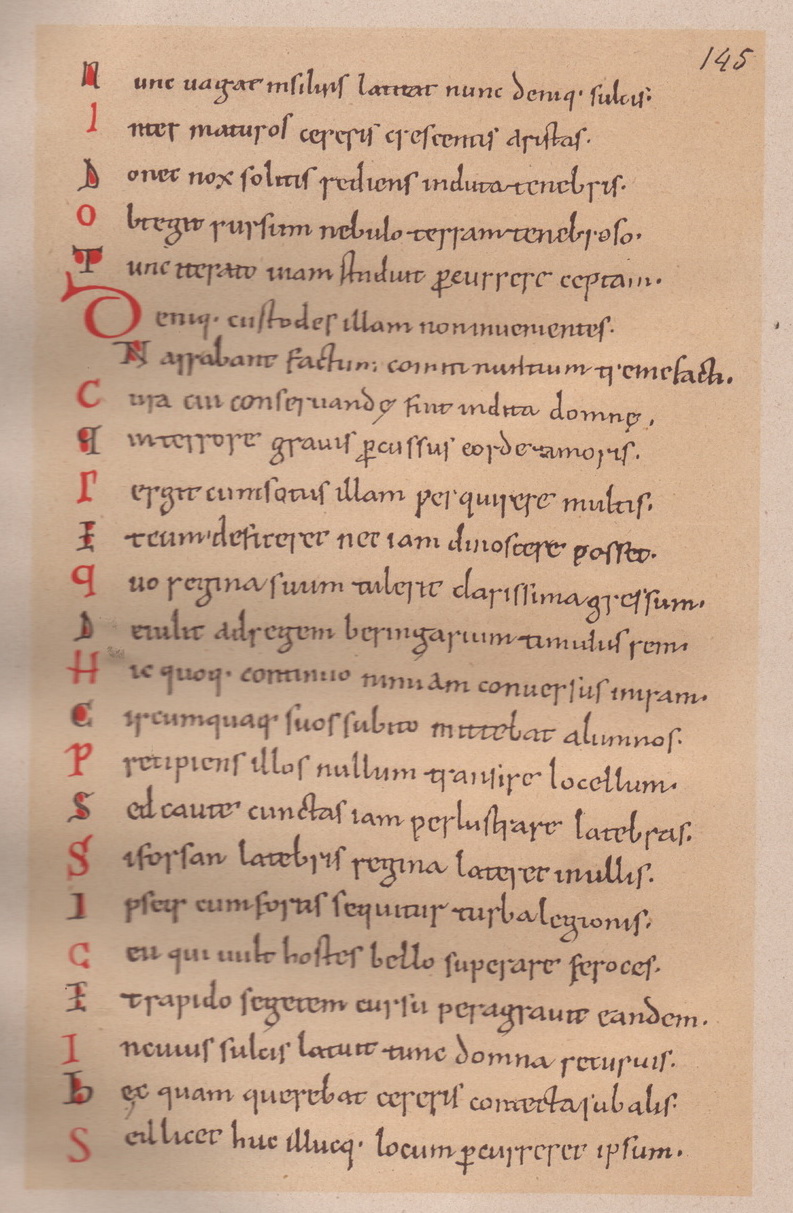 145
Nunc uagat insiluis latitat nunc deniq· sulcis·
Inter maturos cereris crescentis aristas·
Donec nox solitis rediens induta tenebris·
Obtegit rursum nebulo terram tenebroso·
Tunc iterato uiam studuit ꝑcurrere ceptam·
Deniq· custodes illam non inuenientes·
Narrabant factum: comiti nuntium tremefacti·
Cura cui conseruandę fuit indita domnę,
q interrore grauis ꝑcussus corde timoris·
Pergit cum sotiis illam perquirere multis·
Et cum deficeret nec iam dinoscere posset·
quo regina suum tulerit clarissima gressum·
Detulit ad regem beringarium timidus rem·
Hic quoq· continuo nimiam conuersus iniram·
Circumquaq· suos subito mittebat alumnos·
Precipiens illos nullum transire locellum·
Sed caute cunctas iam perlustrare latebras·
Si forsan latebris regina lateret inullis·
Ipseq· cum fortis sequitur turba legionis·
Ceu qui uult hostes bello superare feroces·
Et rapido segetem cursu peragrauit eandem·
In cuius sulcis latuit tunc domna recuruis·
hęc quam querebat cereris contecta sub alis·
Sed licet huc illucq· locum ꝑcurreret ipsum·